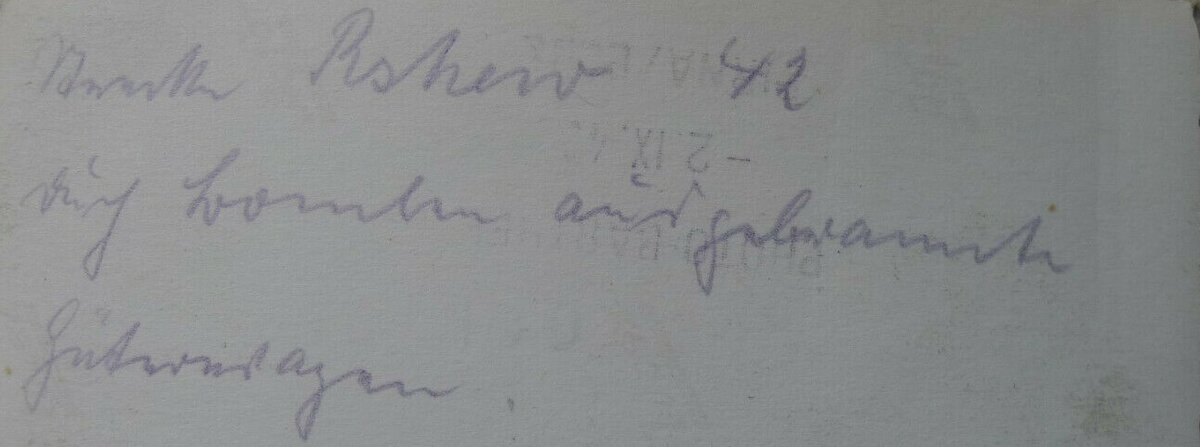 Strecke Rshew 42
durch bomben ausgebrannte
Güterwagen.
-2.IX.4